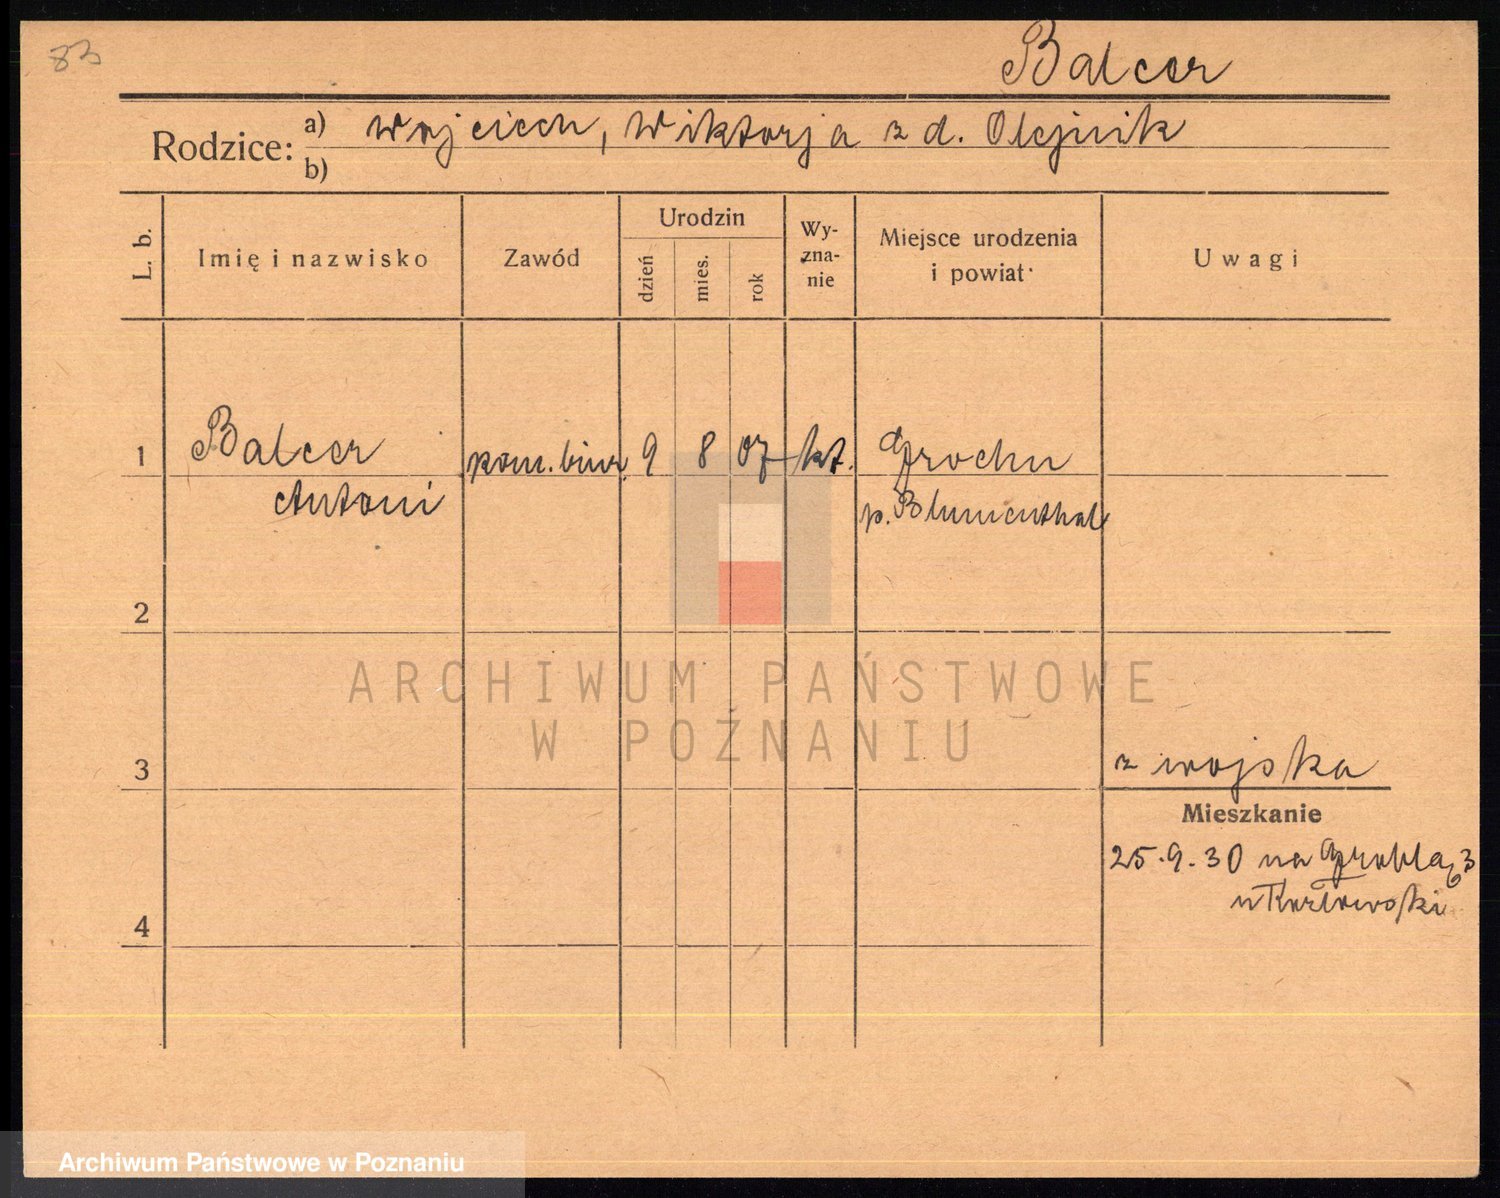 83
Balcer
Rodzice: a) Wojciech, Wiktorja z d. Olejnik
b)
L. b.
Imię i nazwisko
Zawód
Urodzin
dzień
mies.
rok
Wy-
zna-
nie
Miejsce urodzenia
i powiat
Uwagi
1 Balcer pom. biur. 9 8 07 kt. Grochu
Antoni p. Blumenthal
2
ARCHIWUM PAŃSTWOWE
W POZNANIU
3 z wojska
Mieszkanie
25.9.30 na Groblą 3
u Kozłowski
4
Archiwum Państwowe w Poznaniu